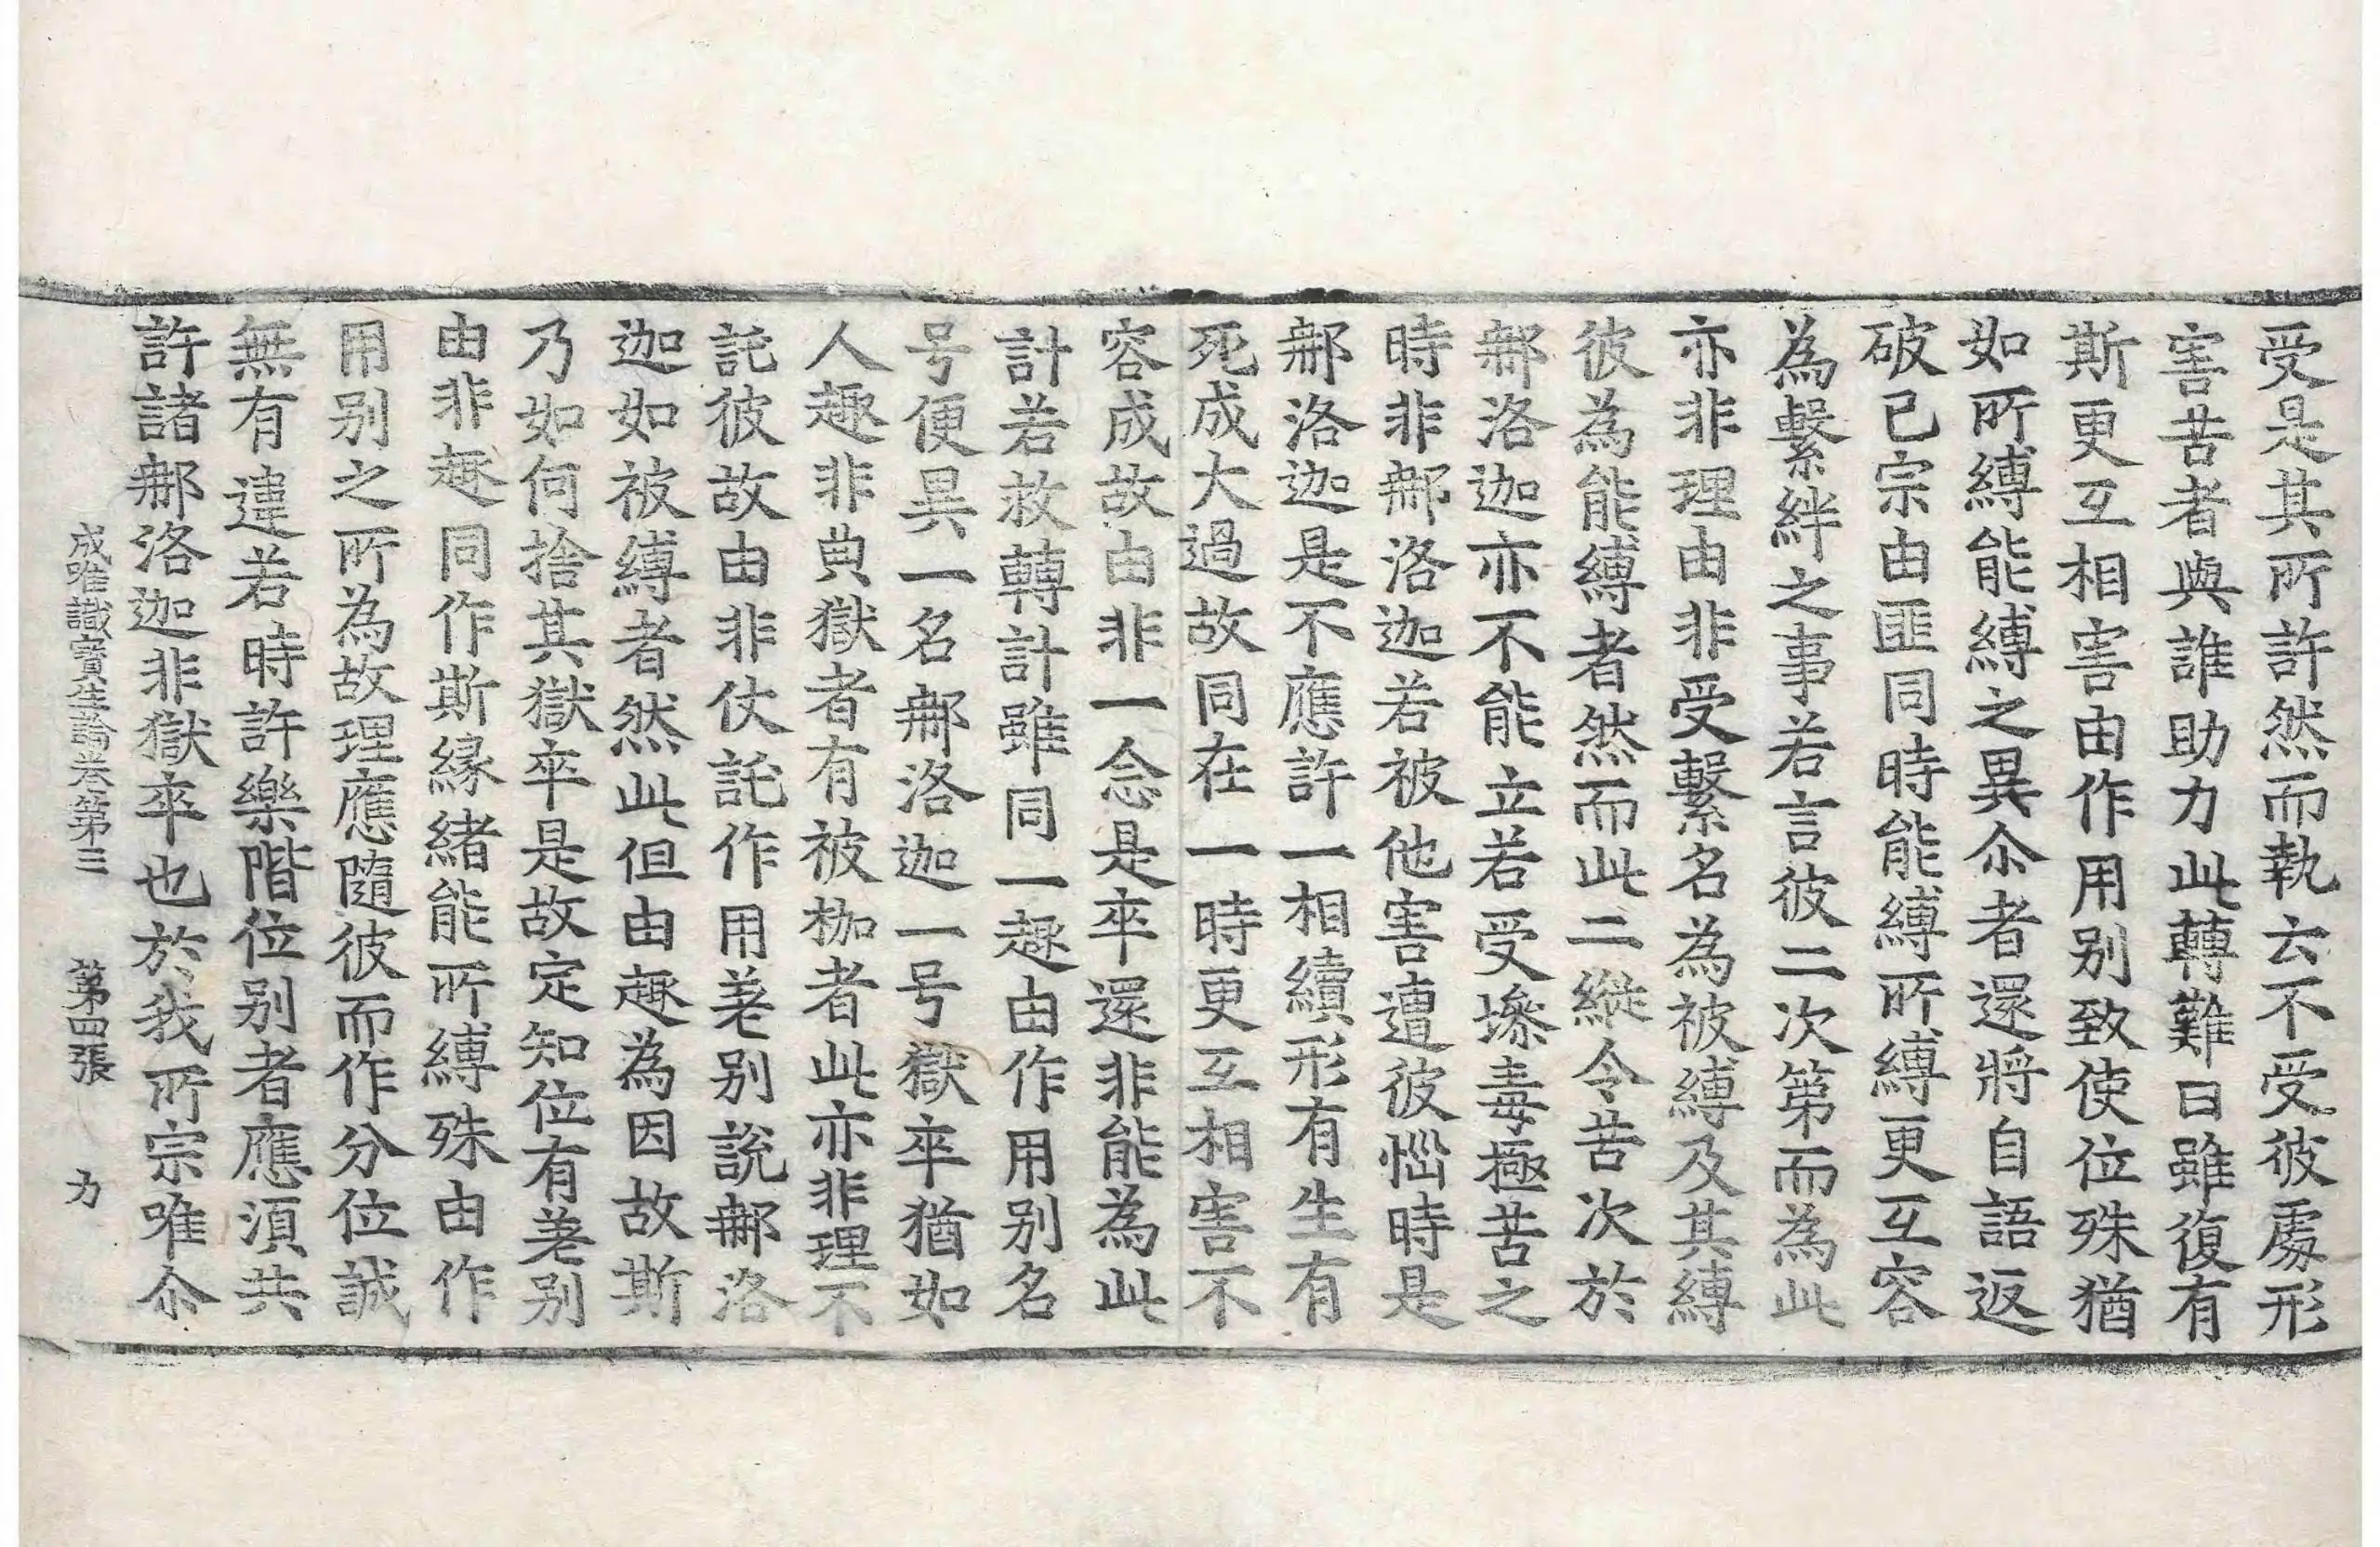 受是其所許然而執云不受彼處形
害苦者與誰助力此轉難曰雖復有
斯更互相害由作用别致使位殊猶
如所縛能縛之異尒者還將自語返
破已宗由匪同時能縛所縛更互容
為繫絆之事若言彼二次第而為此
亦非理由非受繫名為被縛及其縛
彼為能縛者然而此二縱令苦次於
郍洛迦亦不能立若受㙇毒極苦之
時非郍洛迦若被他害遭彼惱時是
郍洛迦是不應許一相續形有生有
死成大過故同在一時更互相害不
容成故由非一念是卒還非能為此
計若救轉計雖同一趣由作用别名
号便異一名郍洛迦一号獄卒猶如
人趣非典獄者有被枷者此亦非理不
託彼故由非仗託作用差别說郍洛
迦如被縛者然此但由趣為因故斯
乃如何捨其獄卒是故定知位有差别
由非趣同作斯緣緒能所縛殊由作
用别之所為故理應隨彼而作分位誠
無有違若時許樂階位别者應須共
許諸郍洛迦非獄卒也於我所宗唯尒
成唯識寶生論卷第三 第四張 力